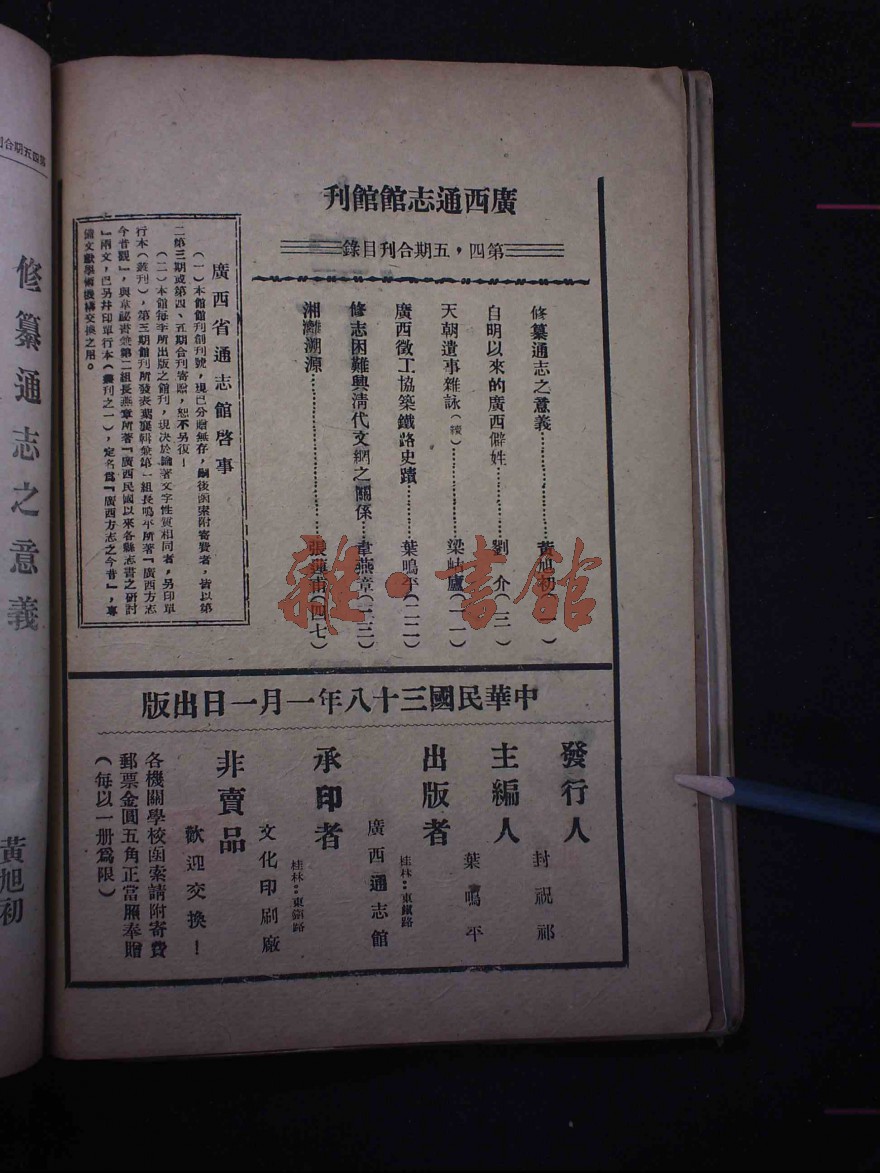 廣西通志館館刊
第四，五期合刊目錄
修纂通志之意義…………黃旭初(一)
自明以來的廣西僻姓…………劉　介(三)
天朝遺事雜詠(續)…………梁岵廬(一一)
廣西徵工協築鐵路史蹟…………葉鳴平(二二)
修志困難與清代文網之關係…韋燕章(三三)
湘灕溯源…………張蓮甫(四七)
廣西省通志館啓事
(一)本館館刊創刊號，現已分贈無存，嗣後函索附寄費者，皆以第
二第三期或第四、五期合刊寄贈，恕不另復！
(二)本館每季所出版之館刊，現決於論著文字性質相同者，另印單
行本(叢刊)，第三期館刊所發表葉襄輯兼第一組長鳴平所著『廣西方志
今昔觀』，與韋秘書兼第二組長燕章所著『廣西民國以來各縣志書之研討
』兩文，已另幷印單行本(叢刊之一)，定名爲『廣西方志之今昔』，專
備文獻學術機構交換之用。
中華民國三十八年一月一日出版
發行人　封祝祁
主編人　葉鳴平
出版者　廣西通志館
桂林：東鎭路
承印者　文化印刷廠
桂林：東鎭路
非賣品
歡迎交換！
各機關學校函索請附寄費
郵票金圓五角正當照奉贈
(每以一册爲限)
第四五期合刊
修纂通志之意義
黃旭初
雜·書館